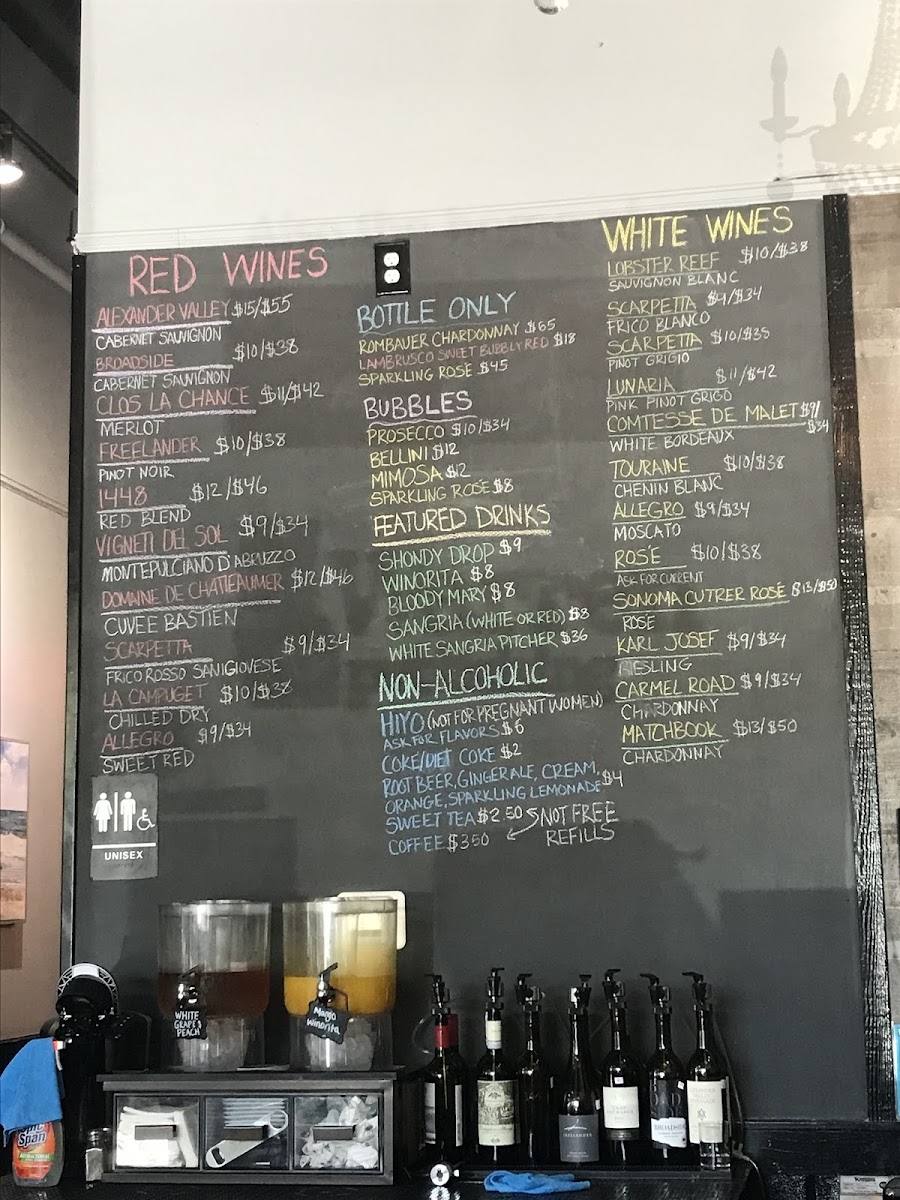 RED WINES
ALEXANDER VALLEY $15/$55
CABERNET SAUVIGNON
BROADSIDE $10/$38
CABERNET SAUVIGNON
CLOS LA CHANCE $11/$42
MERLOT
FREELANDER $10/$38
PINOT NOIR
1448 $12/$46
RED BLEND
VIGNETI DEL SOL $9/$34
MONTEPULCIANO D'ABRUZZO
DOMAINE DE CHATEAUMER $12/$46
CUVEE BASTIEN
SCARPETTA $9/$34
FRICO ROSSO SANIGIOVESE
LA CAMPUGET $10/$38
CHILLED DRY
ALLEGRO $9/$34
SWEET RED
UNISEX
BOTTLE ONLY
ROMBAUER CHARDONNAY $65
LAMBRUSCO SWEET BUBBLY RED $18
SPARKLING ROSE $45
BUBBLES
PROSECCO $10/$34
BELLINI $12
MIMOSA $12
SPARKLING ROSE $8
FEATURED DRINKS
SHONDY DROP $9
WINORITA $8
BLOODY MARY $8
SANGRIA (WHITE OR RED) $8
WHITE SANGRIA PITCHER $36
NON-ALCOHOLIC
HIYO (NOT FOR PREGNANT WOMEN)
ASK FOR FLAVORS $6
COKE/DIET COKE $2
ROOT BEER, GINGERALE, CREAM,
ORANGE, SPARKLING LEMONADE $4
SWEET TEA $2.50 NOT FREE
COFFEE $3.50 REFILLS
WHITE WINES
LOBSTER REEF $10/$38
SAUVIGNON BLANC
SCARPETTA $9/$34
FRICO BLANCO
SCARPETTA $10/$38
PINOT GRIGIO
LUNARIA $11/$42
PINK PINOT GRIGO
COMTESSE DE MALET $9/
$34
WHITE BORDEAUX
TOURAINE $10/$38
CHENIN BLANC
ALLEGRO $9/$34
MOSCATO
ROSE $10/$38
ASK FOR CURRENT
SONOMA CUTRER ROSÉ $13/$50
ROSE
KARL JOSEF $9/$34
RIESLING
CARMEL ROAD $9/$34
CHARDONNAY
MATCHBOOK $13/$50
CHARDONNAY
WHITE
GRAPE &
PEACH
Mango
Winorita
Spic
Span
BROADSIDE